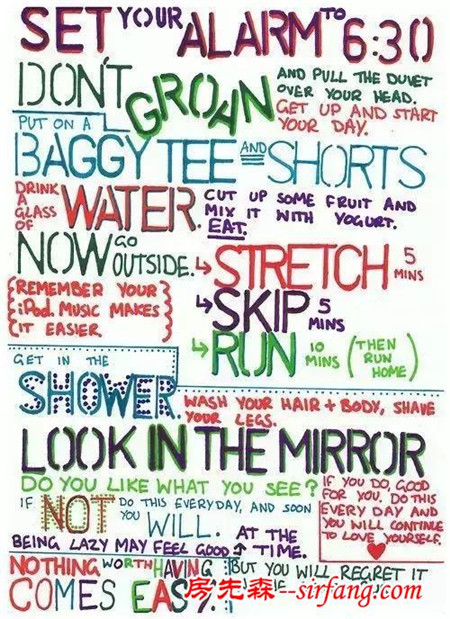 SET YOUR ALARM TO 6:30
DON'T GROAN
AND PULL THE DUVET
OVER YOUR HEAD.
GET UP AND START
YOUR DAY.
PUT ON A
BAGGY TEE AND SHORTS
DRINK
A
GLASS
OF
WATER.
CUT UP SOME FRUIT AND
MIX IT WITH YOGURT.
EAT.
NOW GO
OUTSIDE.
STRETCH 5
MINS
SKIP 5
MINS
RUN 10
MINS
(THEN
RUN
HOME)
REMEMBER YOUR
iPod. MUSIC MAKES
IT EASIER
GET IN THE
SHOWER.
WASH YOUR HAIR + BODY, SHAVE
YOUR LEGS.
LOOK IN THE MIRROR
DO YOU LIKE WHAT YOU SEE?
IF NOT DO THIS EVERYDAY, AND SOON
YOU WILL.
IF YOU DO, GOOD
FOR YOU. DO THIS
EVERY DAY AND
YOU WILL CONTINUE
TO LOVE YOURSELF.
BEING LAZY MAY FEEL GOOD AT THE
TIME.
BUT YOU WILL REGRET IT
NOTHING WORTH HAVING
COMES EASY.
房先森--sirfang.com